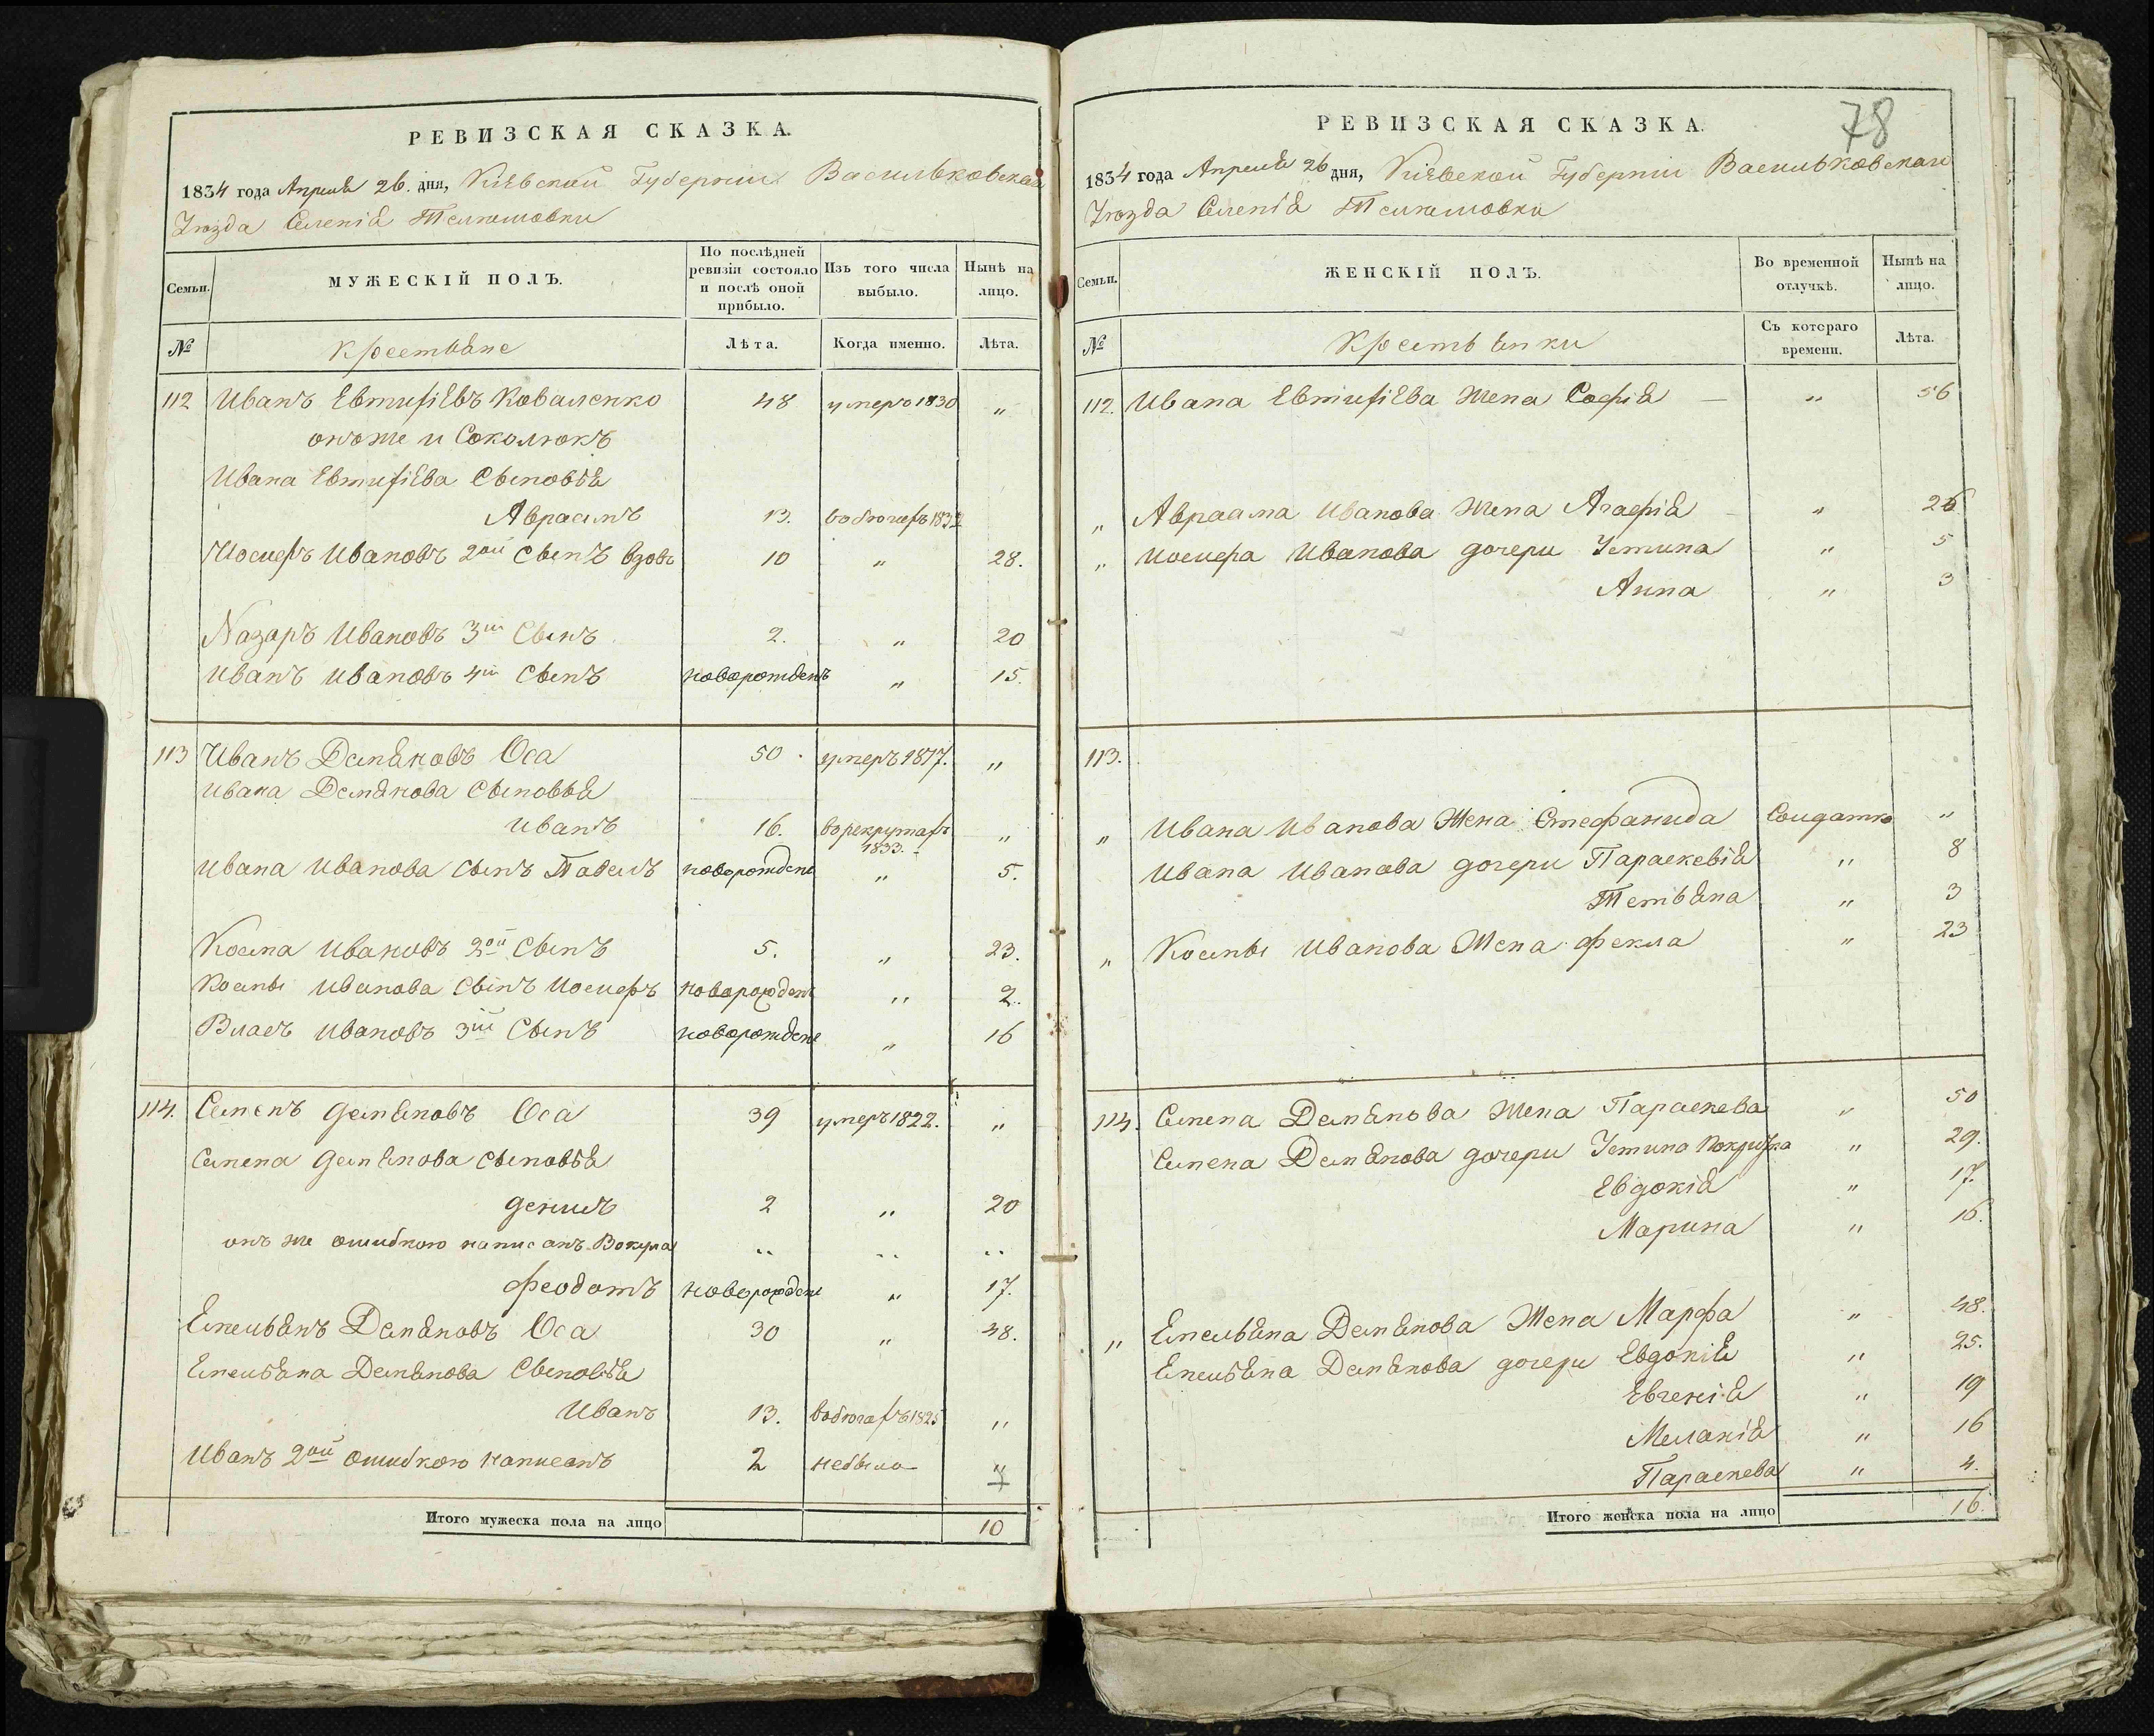 РЕВИЗСКАЯ СКАЗКА.
1834 года Апреля 26. дня, Кіевской Губерніи Васильковскаго
Уѣзда Селенія Телешовки
Семьи.
МУЖЕСКІЙ ПОЛЪ.
По послѣдней ревизіи состояло и послѣ оной прибыло.
Изъ того числа выбыло.
Нынѣ на лицо.
№
Крестьяне
Лѣта.
Когда именно.
Лѣта.
112 Иванъ Евтифіевъ Коваленко 48 умеръ 1830 "
онъ же и Соколюкъ
Ивана Евтифіева Сыновья
Авраамъ 13. вобѣгахъ
Иосифъ Ивановъ 2ой Сынъ вдовъ 10 " 28.
Назаръ Ивановъ 3ій Сынъ 2. " 20
Иванъ Ивановъ 4ій Сынъ новорожденъ " 15.
113 Иванъ Демяновъ Оса 50 умеръ 1817. "
Ивана Демянова Сыновья
Иванъ 16. врекрутахъ 1833. "
Ивана Иванова сынъ Павелъ новорожден " 5.
Косма Ивановъ 2ой Сынъ 5. " 23.
Космы Иванова Сынъ Иосифъ новорожден " 2.
Власъ Ивановъ 3ій Сынъ новорожден " 16
114. Семенъ Демяновъ Оса 39 умеръ 1822. "
Семена Демянова сыновья
Денисъ 2 " 20
онъ же ошибкою написанъ Вокула " " "
Феодотъ новорожден " 17.
Емельянъ Демяновъ Оса 30 " 48.
Емельяна Демянова Сыновья
Иванъ 13. вобѣгахъ 1825 "
Иванъ 2ой ошибкою написанъ 2 небыло "
Итого мужеска пола на лицо 10
78
РЕВИЗСКАЯ СКАЗКА.
1834 года Апреля 26 дня, Кіевской Губерніи Васильковскаго
Уѣзда Селенія Телешовки
Семьи.
ЖЕНСКІЙ ПОЛЪ.
Во временной отлучкѣ.
Нынѣ на лицо.
№
Крестьянки
Съ котораго времени.
Лѣта.
112. Ивана Евтифіева Жена Софія — " 56
" Авраама Иванова Жена Агафія — " 26
" Иосифа Иванова дочери Устина " 5
Анна " 3
113.
" Ивана Иванова Жена Стефанида Солдатка "
Ивана Иванова дочери Параскевія " 8
Тетьяна " 3
" Космы Иванова Жена Фекла " 23
114. Семена Демянова Жена Параскева " 50
Семена Демянова дочери Устина Покрытка " 29.
Евдокія " 17.
Марина " 16.
" Емельяна Демянова Жена Марфа " 48.
Емельяна Демянова дочери Евдокія " 25.
Евгенія " 19
Меланія " 16
Параскева " 4.
Итого женска пола на лицо 16.